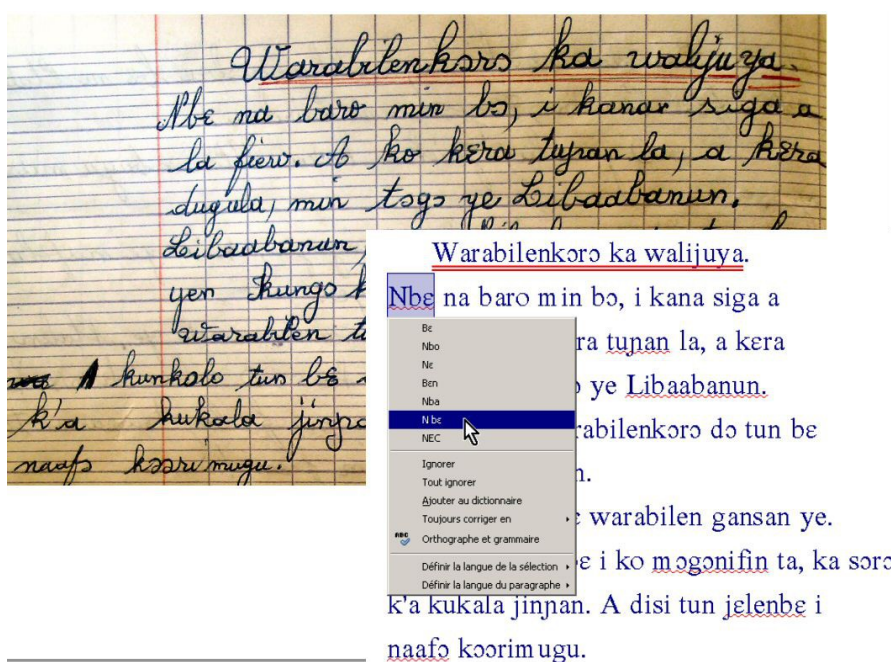 Warabilenkɔrɔ ka walijuya.
Nbɛ na baro min bɔ, i kanar siga a
la fiew. A ko kɛra tuɲan la, a kɛra
dugula, min tɔgɔ ye Libaabanun.
Libaabanun,
yen kungo
warabilen
kunkolo tun bɛ
k'a kukala
naafɔ kɔɔrimugu.
Warabilenkɔrɔ ka walijuya.
Nbɛ na baro min bɔ, i kana siga a
ra tuɲan la, a kɛra
ye Libaabanun.
rabilenkɔrɔ dɔ tun bɛ
n.
warabilen gansan ye.
ɛ i ko mɔgɔnifin ta, ka sɔrɔ
k'a kukala jinɲan. A disi tun jɛlenbɛ i
naafɔ kɔɔrimugu.
Bɛ
Nbo
Nɛ
Bɛn
Nba
N bɛ
NEC
Ignorer
Tout ignorer
Ajouter au dictionnaire
Toujours corriger en
ABC Orthographe et grammaire
Définir la langue de la sélection
Définir la langue du paragraphe